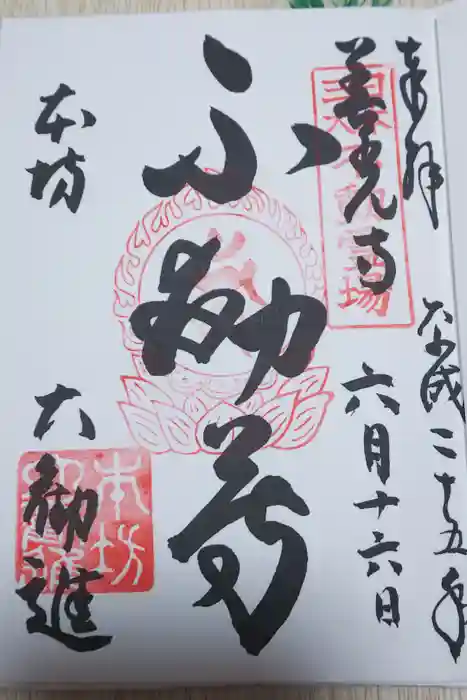 奉拝
平成二十五年
善光寺
六月十六日
不動尊
本坊
大勧進
本坊